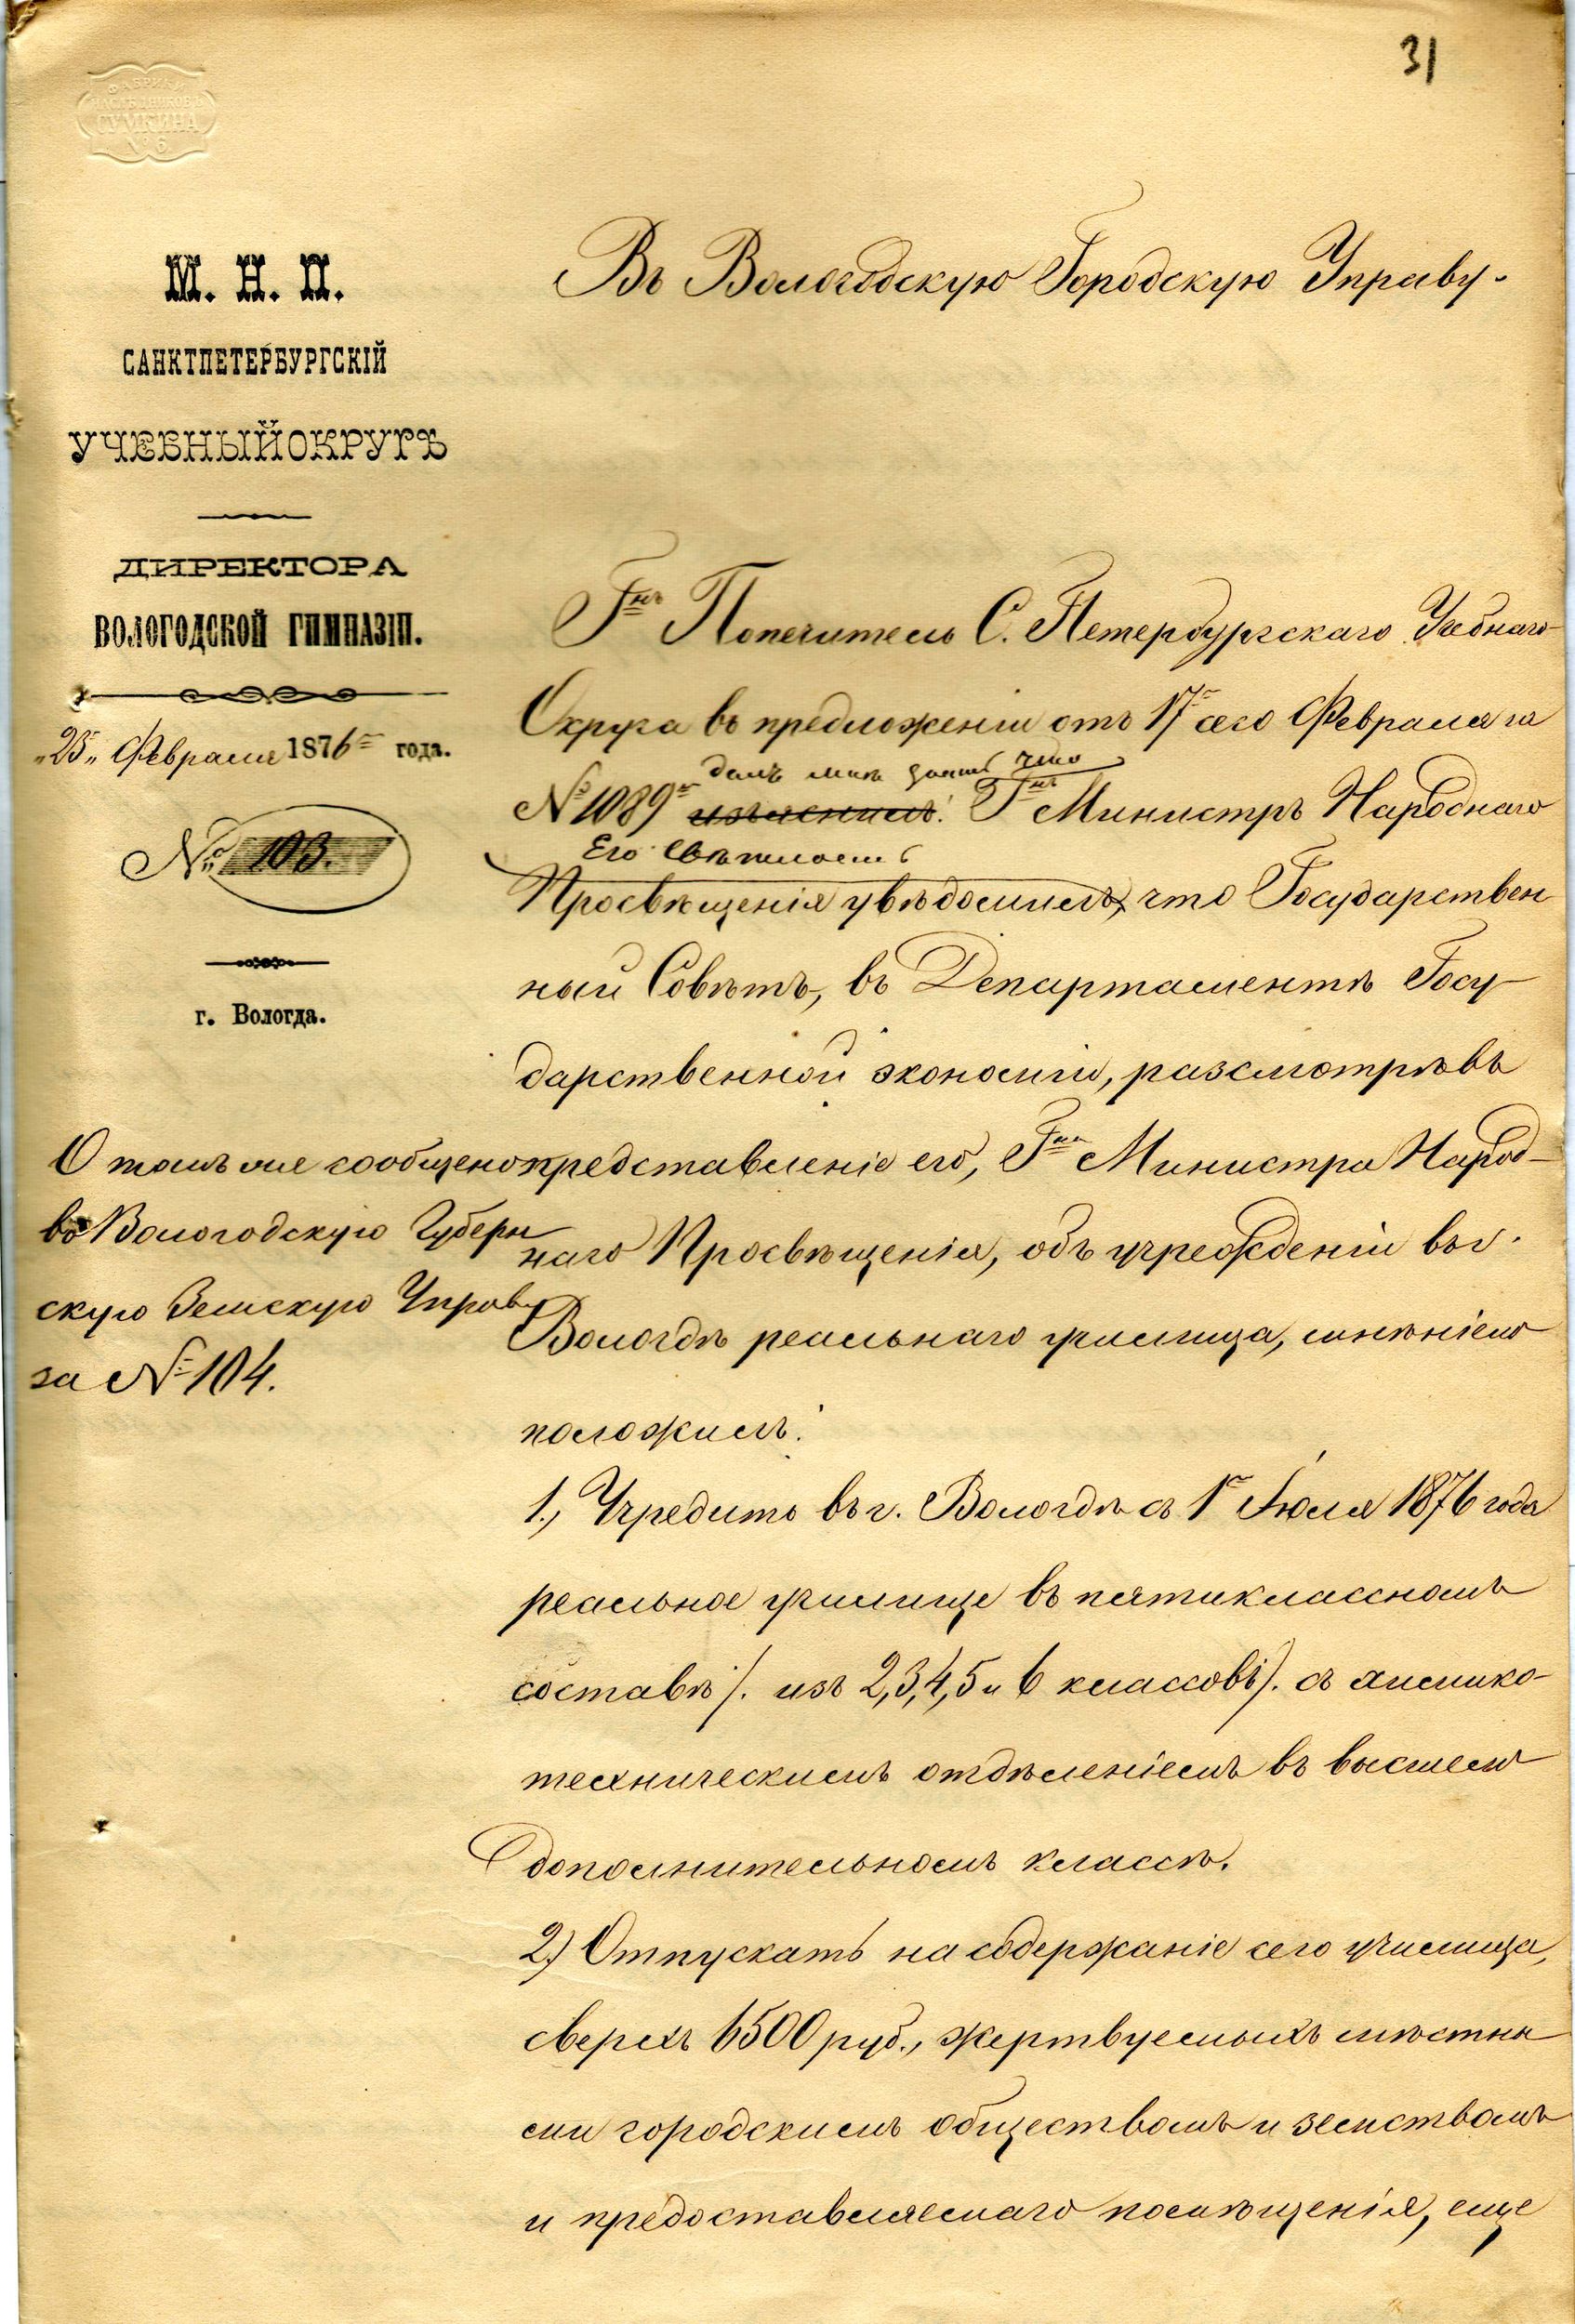 31
ФАБРИКИ
НАСЛѢДНИКОВЪ
СУМКИНА
№ 6
М. Н. П.
САНКТПЕТЕРБУРГСКІЙ
УЧЕБНЫЙ ОКРУГЪ
ДИРЕКТОРА
ВОЛОГОДСКОЙ ГИМНАЗІИ.
„25„ Февраля 1876 года.
№ 103.
г. Вологда.
О томъ же сообщено
въ Вологодскую Губерн
скую Земскую Управу
за № 104.
Въ Вологодскую Городскую Управу.
Гнъ Попечитель С. Петербургскаго Учебнаго
Округа въ предложеніи отъ 17 сего Февраля за
далъ мнѣ знать что
№ 1089 изъяснилъ: Гнъ Министръ Народнаго
Его Свѣтлость
Просвѣщенія увѣдомилъ, что Государствен
ный Совѣтъ, въ Департаментѣ Госу
дарственной экономіи, разсмотрѣвъ
представленіе его, Гна Министра Народ-
наго Просвѣщенія, объ учрежденіи въ г.
Вологдѣ реальнаго училища, мнѣніемъ
положилъ:
1., Учредить въ г. Вологдѣ съ 1го Іюля 1876 года
реальное училище въ пятиклассномъ
составѣ /. изъ 2,3,4,5 и 6 классовъ /. съ химико-
техническимъ отдѣленіемъ въ высшемъ
дополнительномъ классѣ.
2.) Отпускать на содержаніе сего училища,
сверхъ 6500 руб., жертвуемыхъ мѣстны
ми городскимъ обществомъ и земствомъ
и предоставляемаго помѣщенія, еще